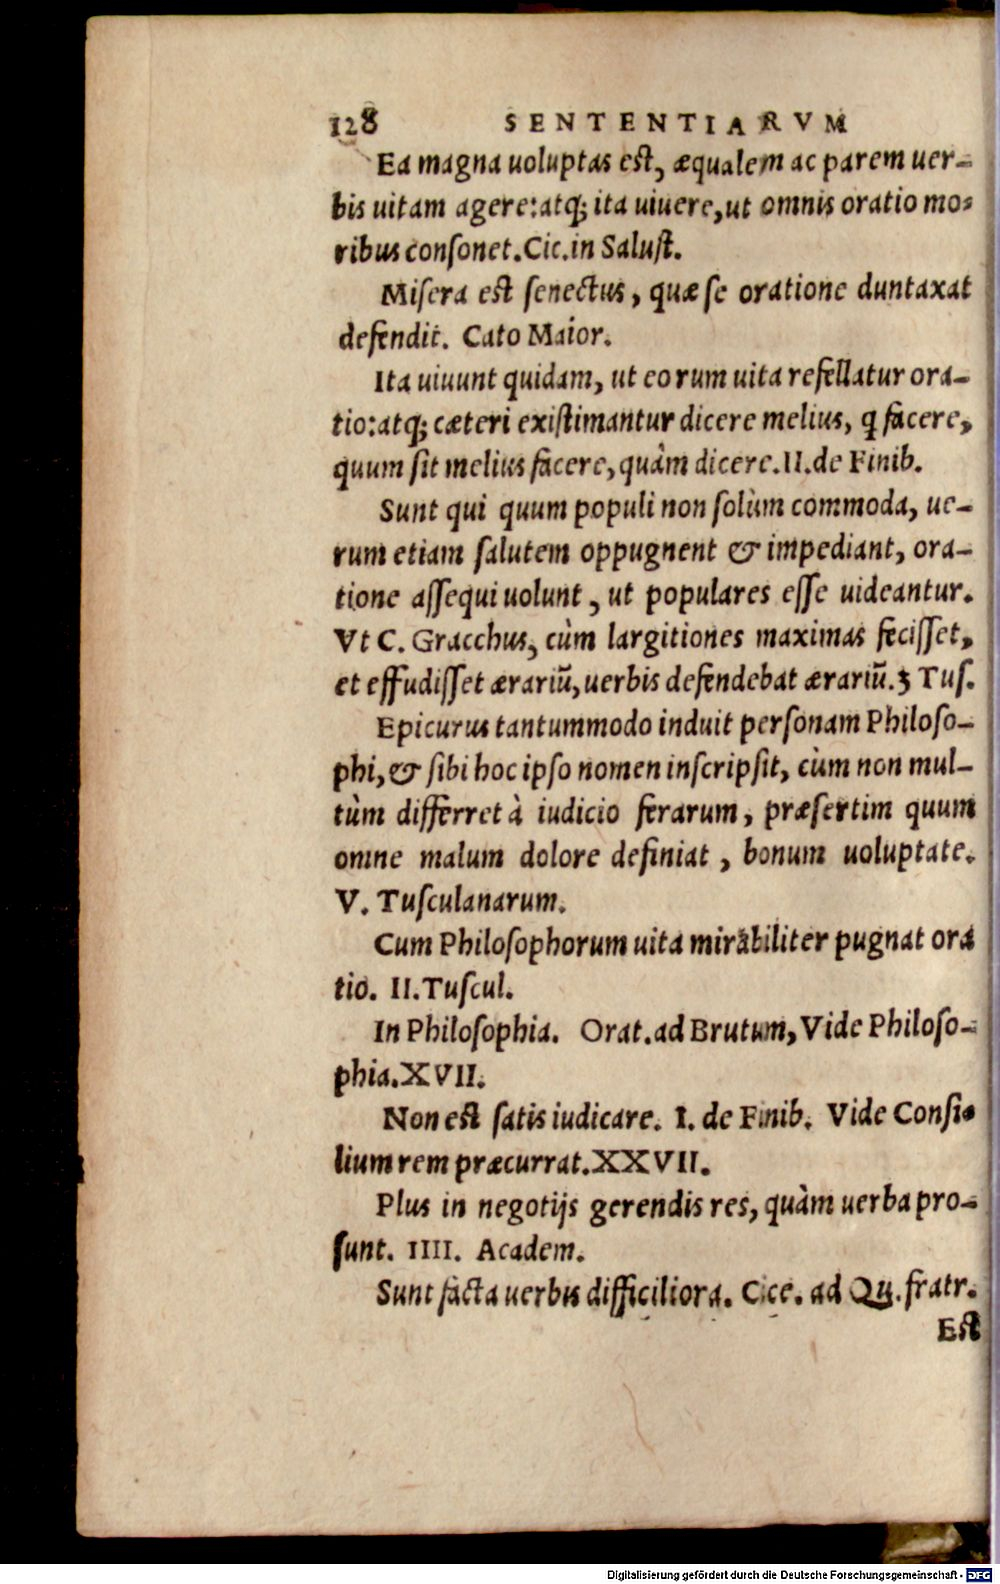 128 SENTENTIARVM
Ea magna uoluptas est, æqualem ac parem uer-
bis uitam agere: atq; ita uiuere, ut omnis oratio mo-
ribus consonet. Cic. in Salust.
Misera est senectus, quæ se oratione duntaxat
defendit. Cato Maior.
Ita uiuunt quidam, ut eorum uita refellatur ora-
tio: atq; cæteri existimantur dicere melius, q̃ facere,
quum sit melius facere, quàm dicere. II. de Finib.
Sunt qui quum populi non solùm commoda, ue-
rum etiam salutem oppugnent & impediant, ora-
tione assequi uolunt, ut populares esse uideantur.
Vt C. Gracchus, cùm largitiones maximas fecisset,
et effudisset ærariũ, uerbis defendebat ærariũ. 3 Tus.
Epicurus tantummodo induit personam Philoso-
phi, & sibi hoc ipso nomen inscripsit, cùm non mul-
tùm differret à iudicio ferarum, præsertim quum
omne malum dolore definiat, bonum uoluptate.
V. Tusculanarum.
Cum Philosophorum uita mirabiliter pugnat ora
tio. II. Tuscul.
In Philosophia. Orat. ad Brutum, Vide Philoso-
phia. XVII.
Non est satis iudicare. I. de Finib. Vide Consi-
lium rem præcurrat. XXVII.
Plus in negotijs gerendis res, quàm uerba pro-
sunt. IIII. Academ.
Sunt facta uerbis difficiliora. Cice. ad Qu. fratr.
Est
Digitalisierung gefördert durch die Deutsche Forschungsgemeinschaft - DFG